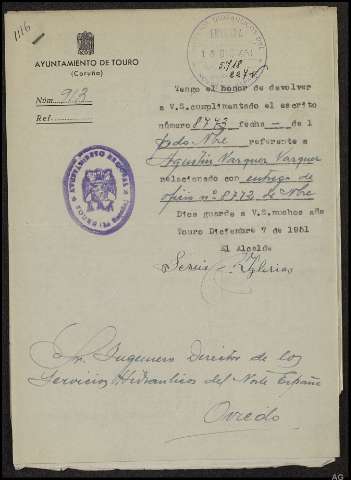 1116
AYUNTAMIENTO DE TOURO
(Coruña)
Núm. 913
Ref.
5718
Tengo el honor de devolver
a V.S.cumplimentado el escrito
número 8773 fecha - de 1
pdo Nbre referente a
Agustin Vazquez Vazquez
relacionado con entrega de
oficio nº 8772 de Nbre
Dios guarde a V.S.muchos año
Touro Diciembre 7 de 1951
El Alcalde
Iglesias
AYUNTAMIENTO NACIONAL
TOURO (La Coruña)
Sr. Ingeniero Director de los
Servicios Hidraulicos del Norte España
Oviedo
AG